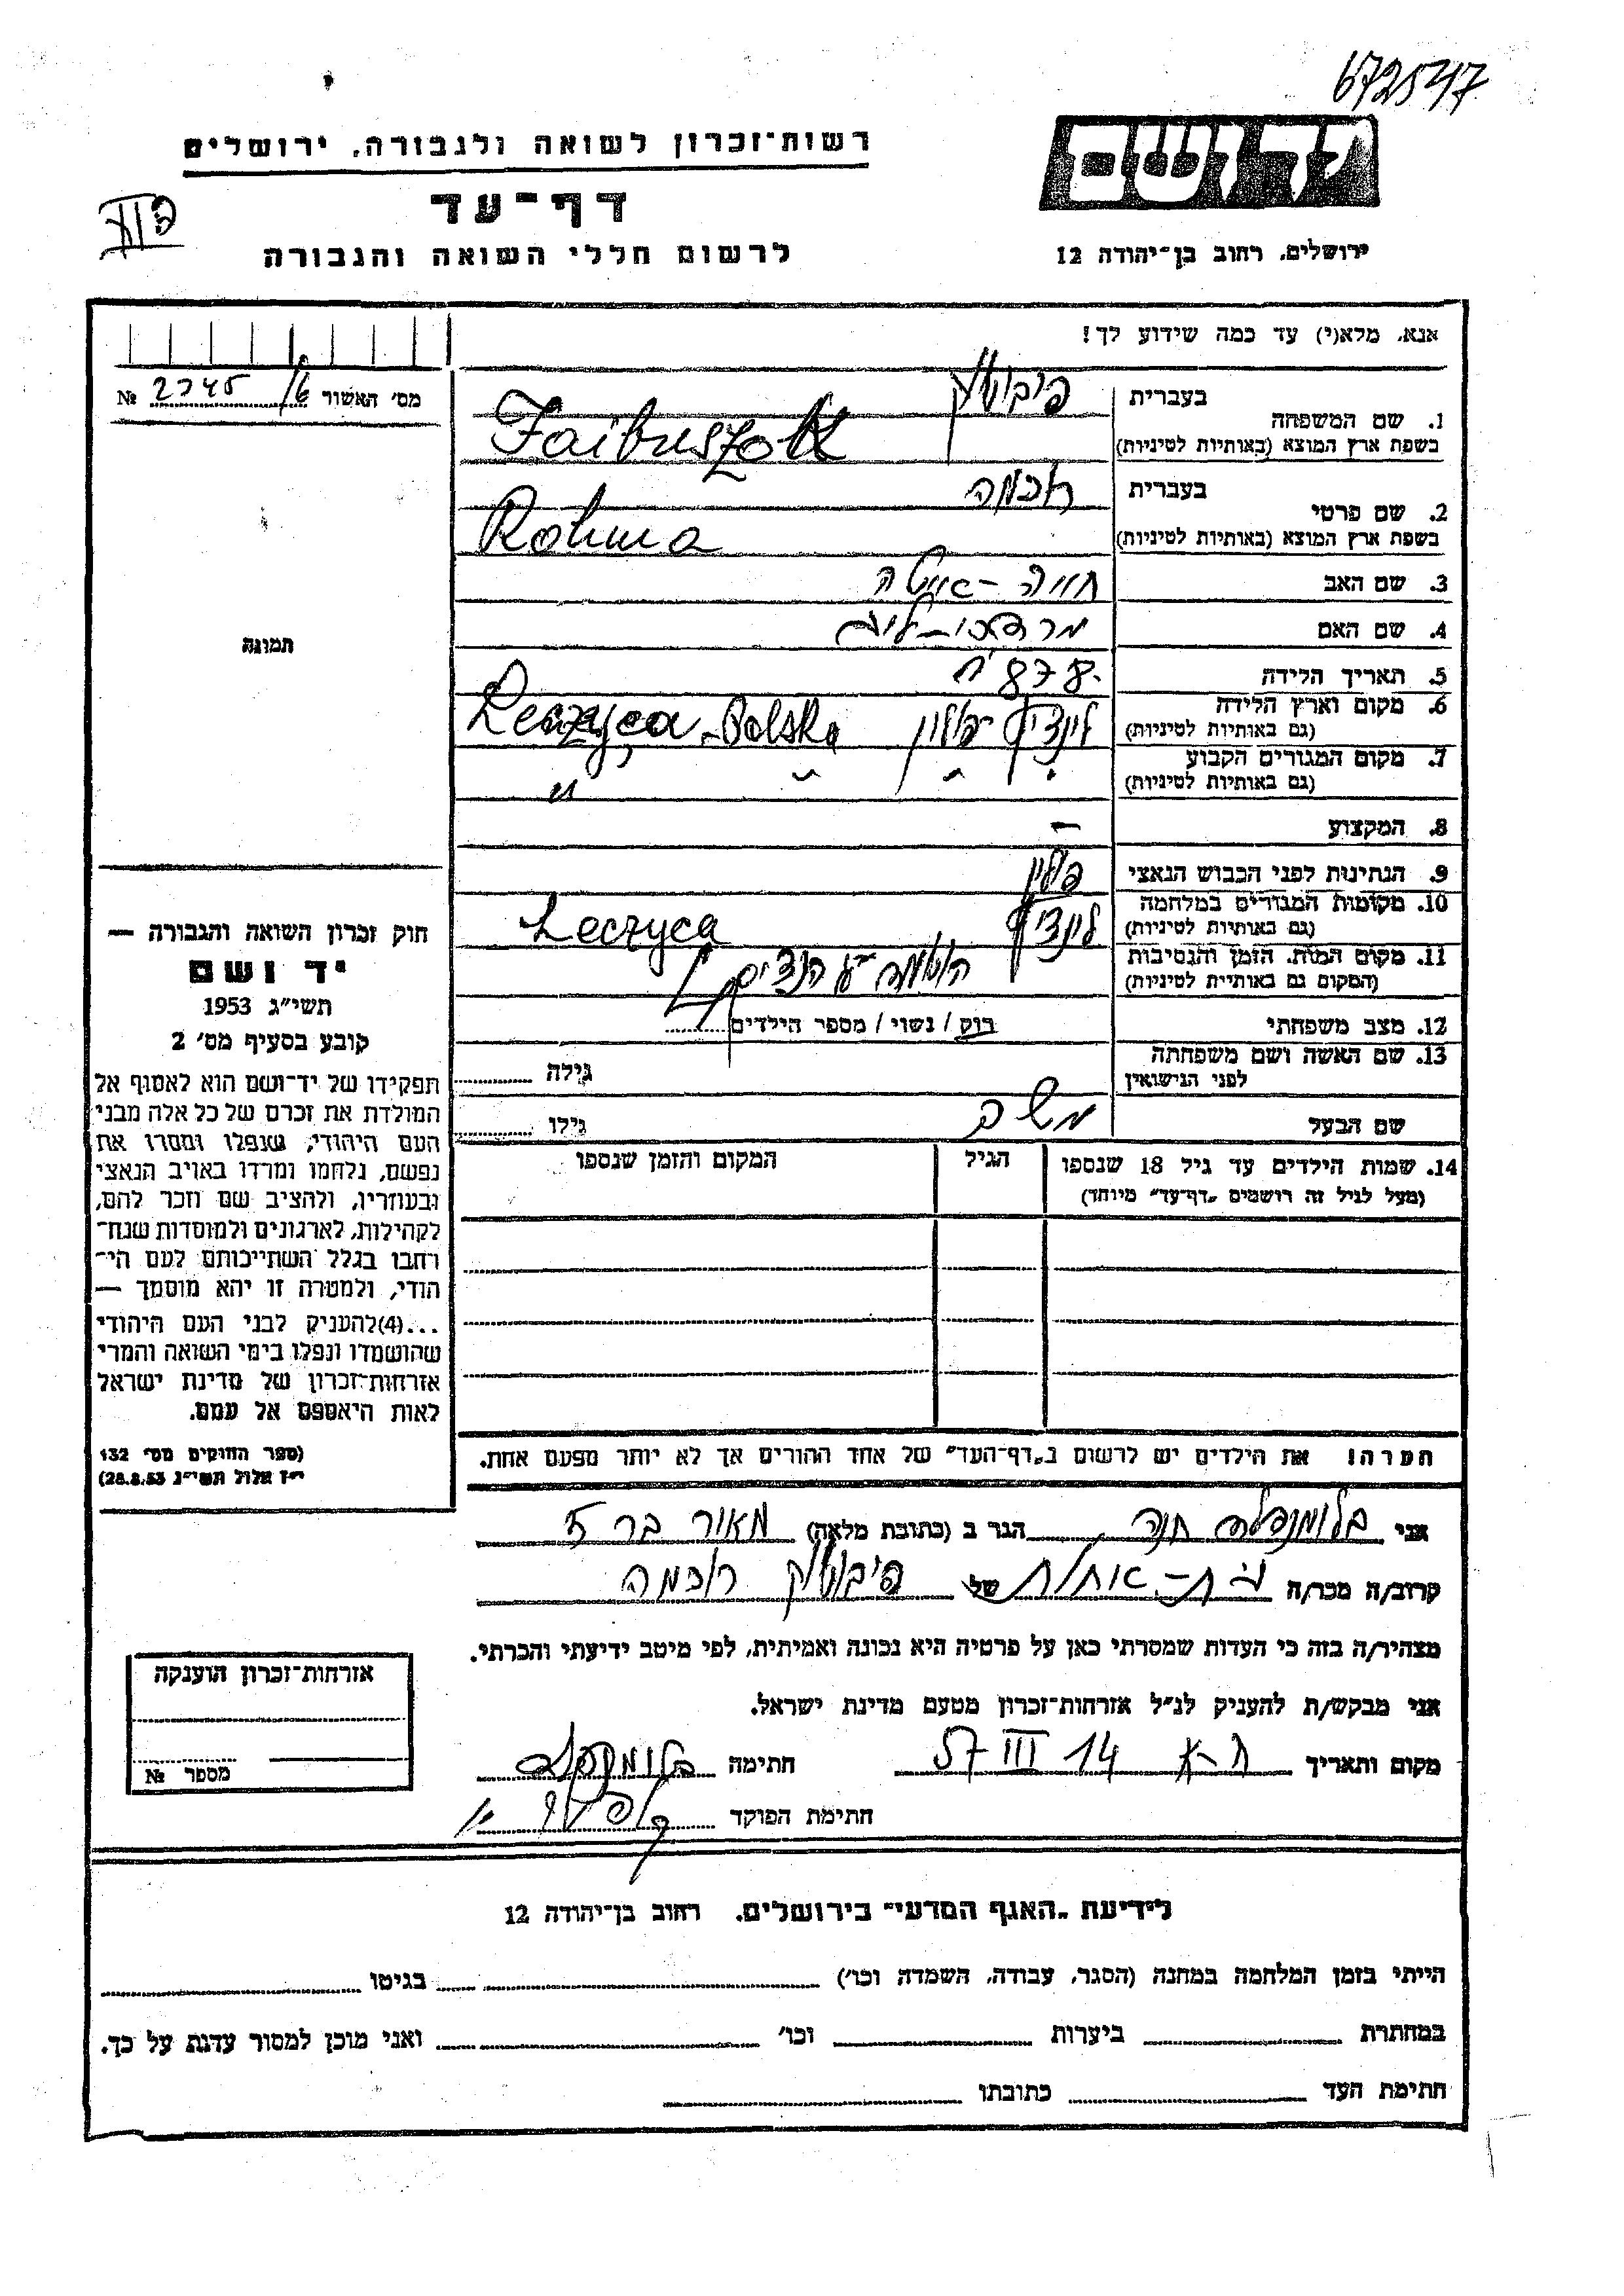 672547
יד ושם
רשות־זכרון לשואה ולגבורה, ירושלים
דף־עד
לרשום חללי השואה והגבורה
ירושלים, רחוב בן־יהודה 12
אנא, מלא(י) עד כמה שידוע לך!
מס׳ האשור № 2745/6
1. שם המשפחה
בעברית פיבושק
בשפת ארץ המוצא (באותיות לטיניות) Faibuszok
2. שם פרטי
בעברית רוכמה
בשפת ארץ המוצא (באותיות לטיניות) Rohma
3. שם האב
4. שם האם
5. תאריך הלידה 1878
6. מקום וארץ הלידה
(גם באותיות לטיניות) לינציץ פולין Leczyca - Polska
7. מקום המגורים הקבוע
(גם באותיות לטיניות) " " "
8. המקצוע –
9. הנתינות לפני הכבוש הנאצי פולין
10. מקומות המגורים במלחמה
(גם באותיות לטיניות) לינציץ Leczyca
11. מקום המות, הזמן והנסיבות
(המקום גם באותיות לטיניות)
12. מצב משפחתי רוק / נשוי / מספר הילדים
13. שם האשה ושם משפחתה
לפני הנישואין גילה
שם הבעל משה גילו
14. שמות הילדים עד גיל 18 שנספו הגיל המקום והזמן שנספו
(מעל לגיל זה רושמים „דף־עד״ מיוחד)
תמונה
חוק זכרון השואה והגבורה —
יד ושם
תשי״ג 1953
קובע בסעיף מס׳ 2
תפקידו של יד־ושם הוא לאסוף אל
המולדת את זכרם של כל אלה מבני
העם היהודי, שנפלו ומסרו את
נפשם, נלחמו ומרדו באויב הנאצי
ובעוזריו, ולהציב שם וזכר להם,
לקהילות, לארגונים ולמוסדות שנח־
רחבו בגלל השתייכותם לעם הי־
הודי, ולמטרה זו יהא מוסמך —
...(4)להעניק לבני העם היהודי
שהושמדו ונפלו בימי השואה והמרי
אזרחות־זכרון של מדינת ישראל
לאות היאספם אל עמם.
(ספר החוקים מס׳ 132
י״ז אלול תשי״ג 28.8.53)
הערה! את הילדים יש לרשום ב„דף־העד״ של אחד ההורים אך לא יותר מפעם אחת.
אני בלומנפלד חנה הגר ב (כתובת מלאה) מאיר בר 3
קרוב/ה מכר/ה בת-אחות של פיבושק רוכמה
מצהיר/ה בזה כי העדות שמסרתי כאן על פרטיה היא נכונה ואמיתית, לפי מיטב ידיעתי והכרתי.
אני מבקש/ת להעניק לנ״ל אזרחות־זכרון מטעם מדינת ישראל.
מקום ותאריך ת-א 14 III 57 חתימה
חתימת הפוקד
אזרחות־זכרון הוענקה
מספר №
לידיעת „האגף המדעי״ בירושלים, רחוב בן־יהודה 12
הייתי בזמן המלחמה במחנה (הסגר, עבודה, השמדה וכו׳) בגיטו
במחתרת ביערות וכו׳ ואני מוכן למסור עדות על כך.
חתימת העד כתובתו